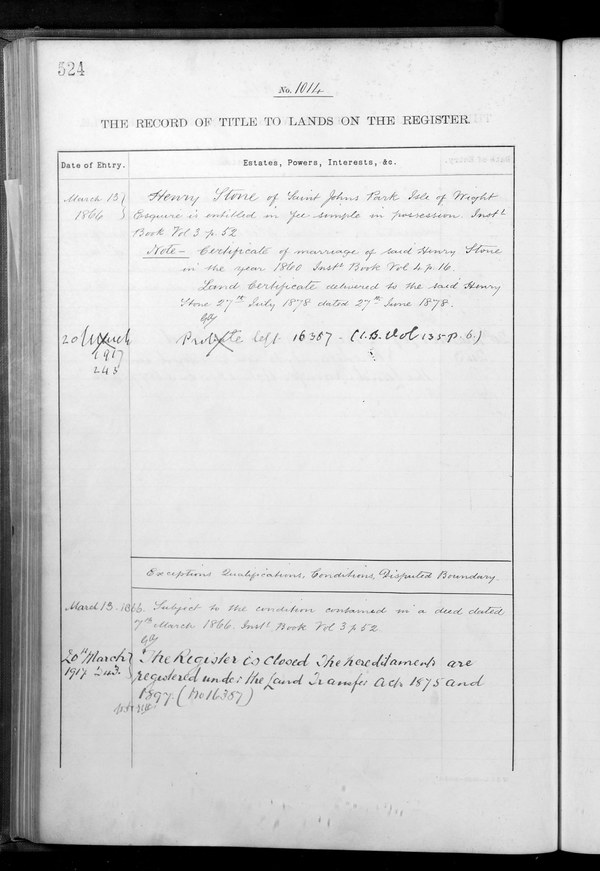 524
No. 1014
THE RECORD OF TITLE TO LANDS ON THE REGISTER.
Date of Entry.
Estates, Powers, Interests, &c.
March 13
1866
Henry Stone of Saint Johns Park Isle of Wight
Esquire is entitled in fee simple in possession. Instt
Book Vol 3 p. 52
Note - Certificate of marriage of said Henry Stone
in the year 1860 Instt Book Vol 4 p. 16.
Land Certificate delivered to the said Henry
Stone 27th July 1878 dated 27th June 1878.
20 March
1917
243
Probate left 16387 - (I.B. Vol 135 p. 6.)
Exceptions Qualifications, Conditions, Disputed Boundary.
March 13. 1866. Subject to the condition contained in a deed dated
7th March 1866. Instt Book Vol 3 p 52
20th March
1917 243.
The Register is closed The hereditaments are
registered under the Land Transfer Acts 1875 and
1897. (No 16387)